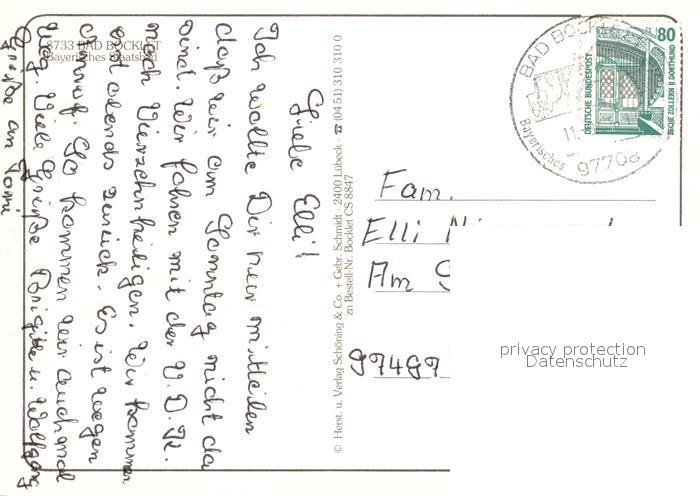 8733 BAD BOCKLET
Bayerisches Staatsbad
Liebe Elli!
Ich wollte Dir nur mitteilen
daß wir am Sonntag nicht da
sind. Wir fahren mit der V.D.K.
nach Vierzehnheiligen. Wir kommen
erst abends zurück. Es ist wegen
Anruf. So kommen wir auch mal
weg. Viele Grüße Brigitte u. Wolfgang
Grüße an Tomi
© Herst. u. Verlag Schöning & Co. + Gebr. Schmidt · 2400 Lübeck · ☎ (04 51) 310 310 0
zu Bestell-Nr. Bocklet CS 8847
BAD BOCKLET
Bayerisches
11.
97708
80
DEUTSCHE BUNDESPOST
ZECHE ZOLLERN II DORTMUND
Fam.
Elli
Am
97497
privacy protection
Datenschutz